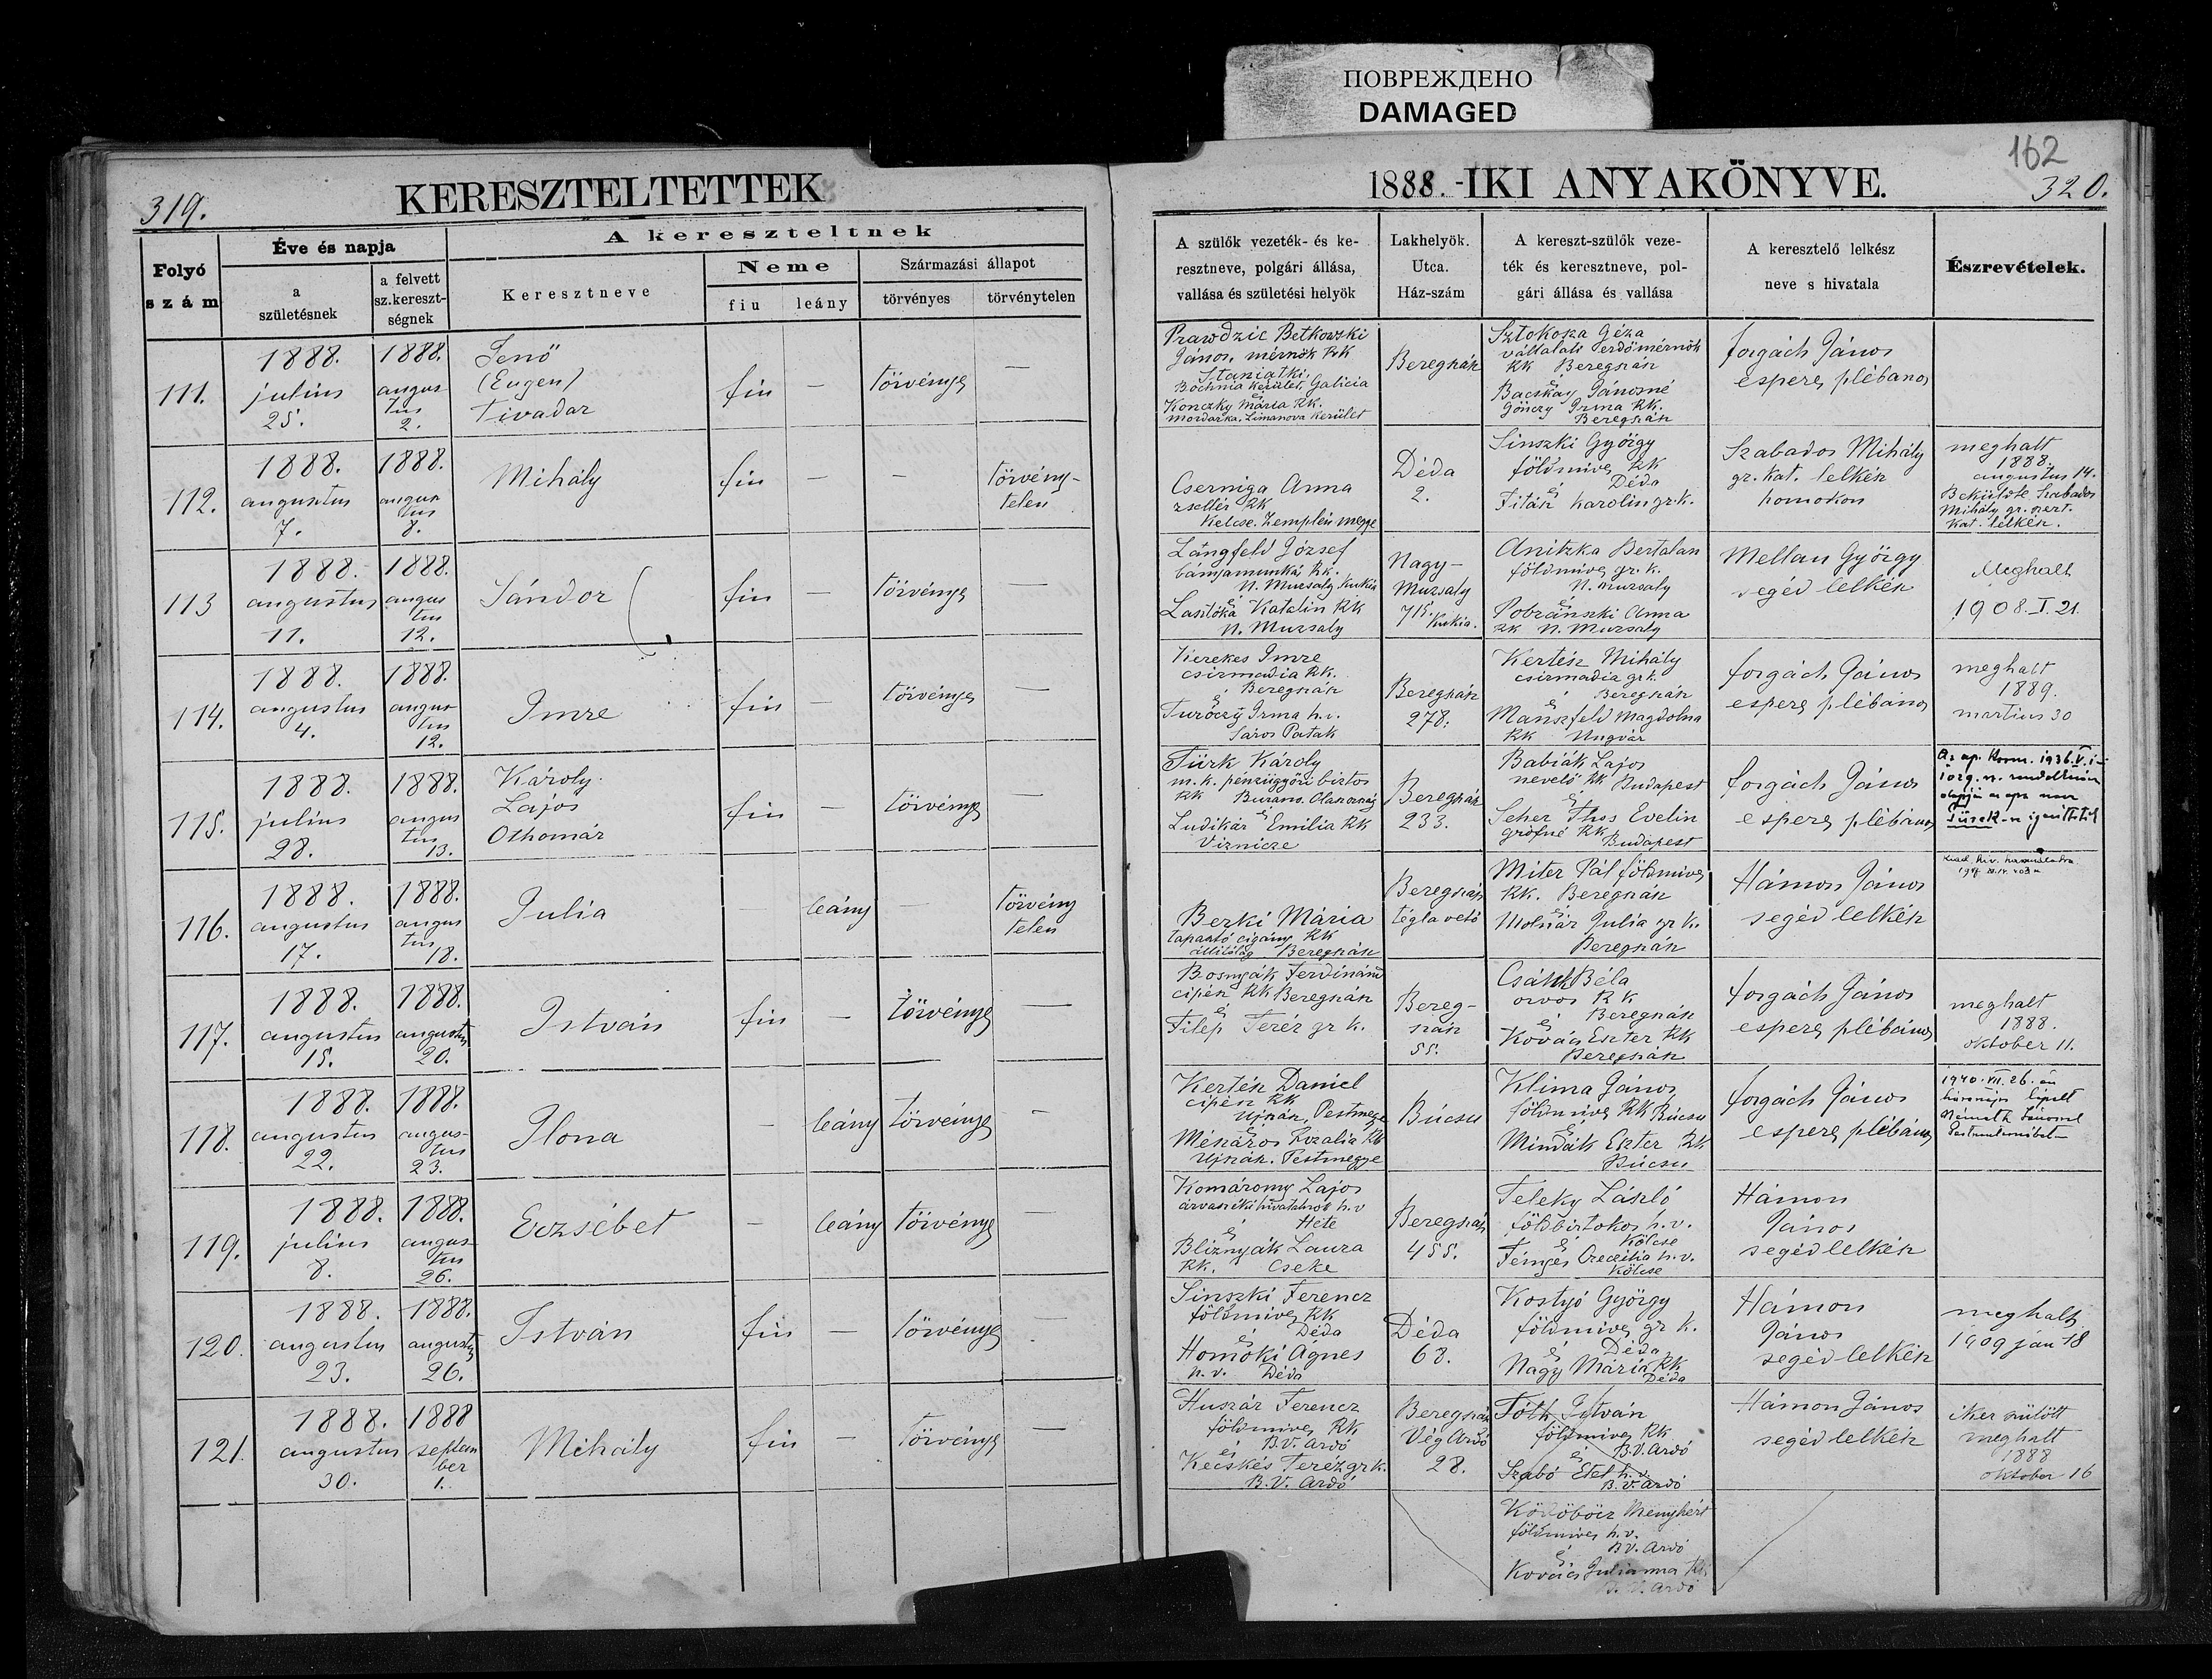 ПОВРЕЖДЕНО
DAMAGED
162
319.
KERESZTELTETTEK
1888.-IKI ANYAKÖNYVE.
320.
Folyó
szám
Éve és napja
a
születésnek
a felvett
sz.kereszt-
ségnek
A kereszteltnek
Keresztneve
Neme
fiu
leány
Származási állapot
törvényes
törvénytelen
A szülők vezeték- és ke-
resztneve, polgári állása,
vallása és születési helyök
Lakhelyök.
Utca.
Ház-szám
A kereszt-szülők veze-
ték és keresztneve, pol-
gári állása és vallása
A keresztelő lelkész
neve s hivatala
Észrevételek.
111.
1888.
julius
25.
1888.
augus
tus
2.
Jenő
(Eugen)
Tivadar
fiu
—
törvényes
—
Prawdzic Betkowski
János, mérnök RK
Staniatki,
Bochnia kerület, Galicia
és
Konczky Mária RK.
Mordarka, Limanova kerület
Beregszász
Sztokoka Géza
vállalati erdőmérnök
RK Beregszász
és
Bacskay Jánosné
Gönczy Irma RK.
Beregszász
Forgách János
esperes plébános
112.
1888.
augusztus
7.
1888.
augus
tus
8.
Mihály
fiu
—
—
törvény-
telen
Cserniga Anna
zsellér RK
Kelcse. Zemplén megye
Déda
2.
Sinszki György
földmives RK
Déda
és
Fitász Karolin gr.k.
Szabados Mihály
gr. kat. lelkész
homokon
meghalt
1888.
augustus 14.
Beküldte Szabados
Mihály gr. szert.
kat. lelkész.
113
1888.
augustus
11.
1888.
augus
tus
12.
Sándor
fiu
—
törvényes
—
Lángfeld József
bányamunkás RK.
N. Muzsaly, Kukia
és
Lasitóka Katalin RK
N. Muzsaly
Nagy-
Muzsaly
715. Kukia.
Anitzka Bertalan
földmives gr. k.
N. muzsaly
és
Pobránszki Anna
RK N. Muzsaly
Mellau György
segéd lelkész
Meghalt
1908. I. 21.
114.
1888.
augustus
4.
1888.
augus
tus
12.
Imre
fiu
—
törvényes
—
Kerekes Imre
csizmadia RK.
és Beregszász
Turóczy Irma h.v.
Sáros Patak
Beregszász
278.
Kertész Mihály
csizmadia gr k.
és Beregszász
Mánszfeld Magdolna
RK Ungvár
Forgách János
esperes plébános
meghalt
1889.
martius 30
115.
1888.
julius
28.
1888.
augus
tus
13.
Károly
Lajos
Othomár
fiu
—
törvényes
—
Türk Károly
m. k. pénzügyőri biztos
RK Burano. Olaszország
és
Ludikár Emilia RK
Viznicze
Beregszász
233.
Babiák Lajos
nevelő RK Budapest
és
Seher Thos Evelin
grófné RK
Budapest
Forgách János
esperes plébános
116.
1888.
augustus
17.
1888.
augus
tus
18.
Julia
—
leány
—
törvény
telen
Berki Mária
tapasztó cigány RK
állitólag Beregszász
Beregszász
téglavető
Miter Pál földmives
RK. Beregszász
és
Molnár Julia gr k.
Beregszász
Hámon János
segéd lelkész
117.
1888.
augustus
15.
1888.
augustus
20.
István
fiu
—
törvényes
—
Bosnyák Ferdinánd
cipész RK Beregszász
és
Filep Teréz gr k.
Bereg-
szász
55.
Csánk Béla
orvos RK
és Beregszász
Kovács Eszter RK
Beregszász
Forgách János
esperes plébános
meghalt
1888.
oktober 11.
118.
1888.
augustus
22.
1888.
augus-
tus
23.
Ilona
—
leány
törvényes
—
Kertész Daniel
cipész RK
Ujszász, Pestmegye
és
Mészáros Rozalia RK
Ujszász. Pestmegye
Búcsu
Klima János
földmives RK Búcsu
és
Mindák Eszter RK
Búcsu
Forgách János
esperes plébános
1940. VII. 26.-án
házasságra lépett
Németh Jánossal
119.
1888.
julius
8.
1888.
augus-
tus
26.
Erzsébet
—
leány
törvényes
—
Komáromy Lajos
árvaszéki hivatalnok h.v
és Hete
Bliznyák Laura
RK. Cseke
Beregszász
455.
Teleky László
földbirtokos h.v.
és Kölcse
Fényes Czeczilia h.v.
Kölcse
Hámon
János
segédlelkész
120.
1888.
augustus
23.
1888.
augustus
26.
István
fiu
—
törvényes
—
Sinszki Ferencz
földmives RK
és Déda
Homoki Ágnes
h.v. Déda
Déda
68.
Kostyó György
földmives gr k.
és Déda,
Nagy Mária RK
Déda
Hámon
János
segédlelkész
meghalt
1909 jan 18
121.
1888.
augustus
30.
1888
septem
ber
1.
Mihály
fiu
—
törvényes
—
Huszár Ferencz
földmives RK
és B.V. Ardó
Kecskés Teréz gr k.
B.V. Ardó
Beregszász
Vég Ardó
28.
Tóth István
földmives RK
és B.V. Ardó
Szabó Etel h.v.
B.V. Ardó
Hámon János
segéd lelkész
iker szülött
meghalt
1888
oktober 16
Ködöböcz Menyhért
földmives h.v.
és BV. Ardó
Kovács Julianna RK.
B.V. Ardó